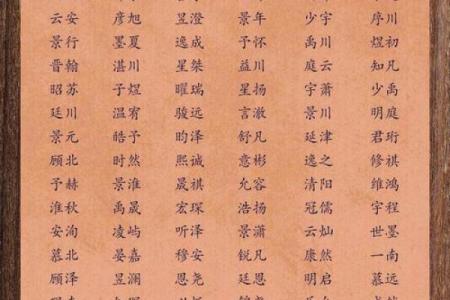 云安 彦旭 昱澄 景年 少宇 序川
景行 墨夏 逸成 予怀 禹川 煜初
晋翰 湛川 星桀 益川 庭云 知凡
昭苏 子煜 曜瑞 星扬 宇萧 少禹
廷川 温宥 骏远 言澈 景川 明庭
景元 皓予 昀泽 舒凡 延津 君珩
顾北 时然 熙诚 意彬 逸之 修祺
予赫 景淮 晟祺 允容 清阳 维鸿
淮秋 禹晟 宏琛 浩扬 冠儒 宇程
安洵 凌屿 听泽 景潇 云灿 世墨
慕北 晏嘉 穆安 锐凡 康然 一南
顾泽 昱澜 恩尧 廷恩 明启 慕远